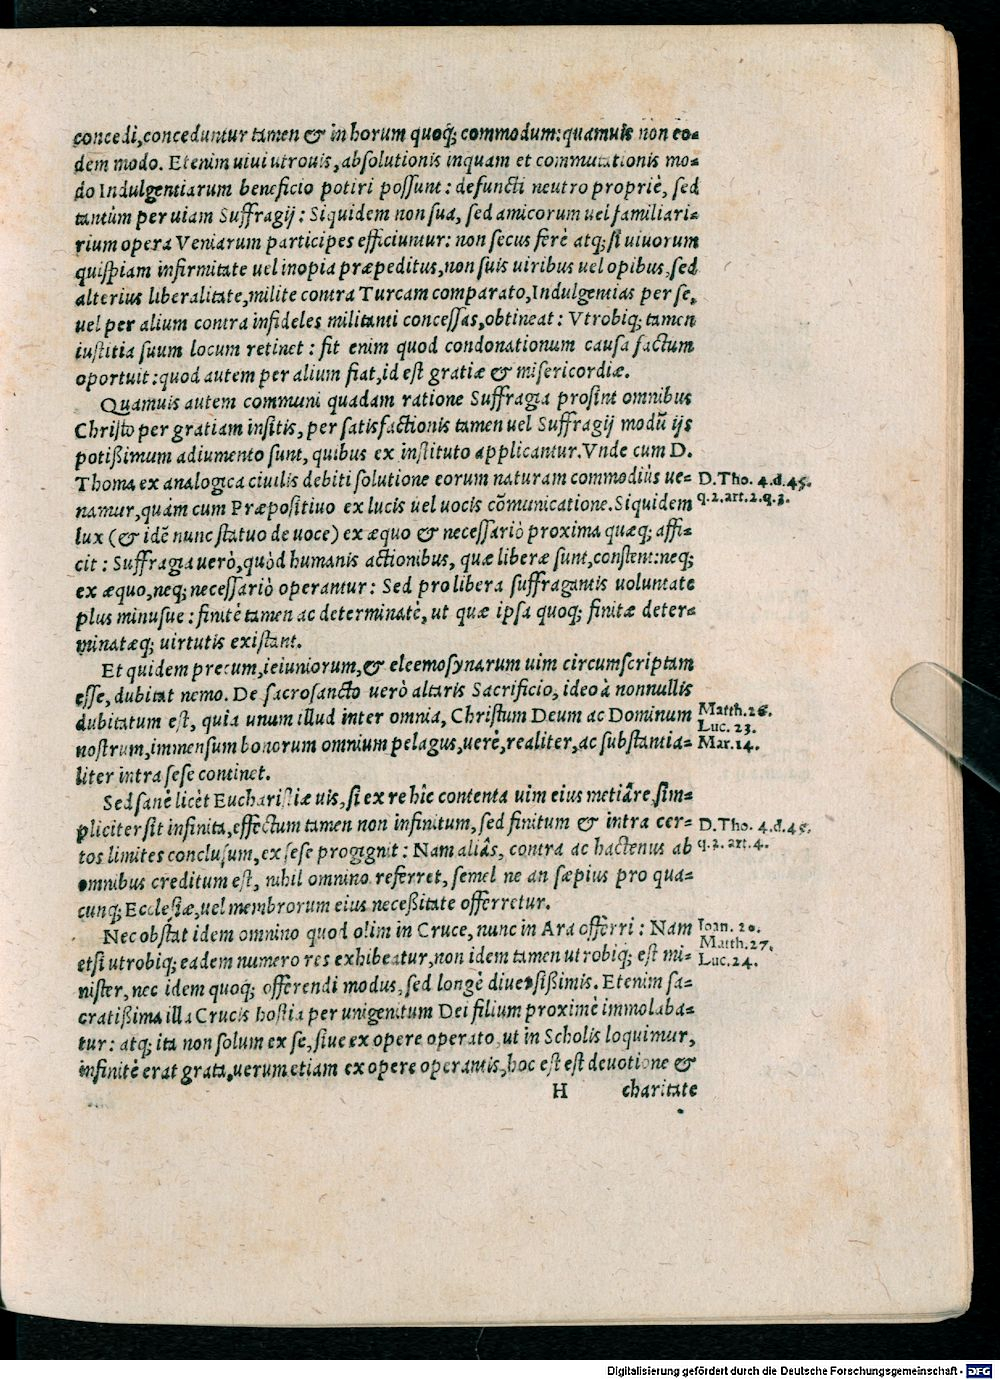 concedi, conceduntur tamen & in horum quoq; commodum: quamuis non eo-
dem modo. Etenim uiui utrouis, absolutionis inquam et commutationis mo-
do Indulgentiarum beneficio potiri possunt: defuncti neutro propriè, sed
tantùm per uiam Suffragij: Siquidem non sua, sed amicorum uel familiari-
rium opera Veniarum participes efficiuntur: non secus ferè atq; si uiuorum
quispiam infirmitate uel inopia præpeditus, non suis uiribus uel opibus, sed
alterius liberalitate, milite contra Turcam comparato, Indulgentias per se,
uel per alium contra infideles militanti concessas, obtineat: Vtrobiq; tamen
iustitia suum locum retinet: fit enim quod condonationum causa factum
oportuit: quod autem per alium fiat, id est gratiæ & misericordiæ.
Quamuis autem communi quadam ratione Suffragia prosint omnibus
Christo per gratiam insitis, per satisfactionis tamen uel Suffragij modū ijs
potißimum adiumento sunt, quibus ex instituto applicantur. Vnde cum D.
Thoma ex analogica ciuilis debiti solutione eorum naturam commodiùs ue-
namur, quàm cum Præpositiuo ex lucis uel uocis cōmunicatione. Siquidem
lux (& idē nunc statuo de uoce) ex æquo & necessariò proxima quæq; affi-
cit: Suffragia uerò, quòd humanis actionibus, quæ liberæ sunt, constent: neq;
ex æquo, neq; necessariò operantur: Sed pro libera suffragantis uoluntate
plus minusue: finitè tamen ac determinatè, ut quæ ipsa quoq; finitæ deter-
minatæq; uirtutis existant.
Et quidem precum, ieiuniorum, & eleemosynarum uim circumscriptam
esse, dubitat nemo. De sacrosancto uerò altaris Sacrificio, ideo à nonnullis
dubitatum est, quia unum illud inter omnia, Christum Deum ac Dominum
nostrum, immensum bonorum omnium pelagus, uerè, realiter, ac substantia-
liter intra sese continet.
Sed sanè licèt Eucharistiæ uis, si ex re hîc contenta uim eius metiâre, sim-
pliciter sit infinita, effectum tamen non infinitum, sed finitum & intra cer-
tos limites conclusum, ex sese progignit: Nam aliâs, contra ac hactenus ab
omnibus creditum est, nihil omnino referret, semel ne an sæpius pro qua-
cunq; Ecclesiæ, uel membrorum eius neceßitate offerretur.
Nec obstat idem omnino quod olim in Cruce, nunc in Ara offerri: Nam
etsi utrobiq; eadem numero res exhibeatur, non idem tamen utrobiq; est mi-
nister, nec idem quoq; offerendi modus, sed longè diuersißimis. Etenim sa-
cratißima illa Crucis hostia per unigenitum Dei filium proximè immolaba-
tur: atq; ita non solum ex se, siue ex opere operato, ut in Scholis loquimur,
infinitè erat grata, uerumetiam ex opere operantis, hoc est est deuotione &
H charitate
D. Tho. 4. d. 45.
q. 2. art. 2. q. 3.
Matth. 26.
Luc. 23.
Mar. 14.
D. Tho. 4. d. 45.
q. 2. art. 4.
Ioan. 20.
Matth. 27.
Luc. 24.
Digitalisierung gefördert durch die Deutsche Forschungsgemeinschaft - DFG